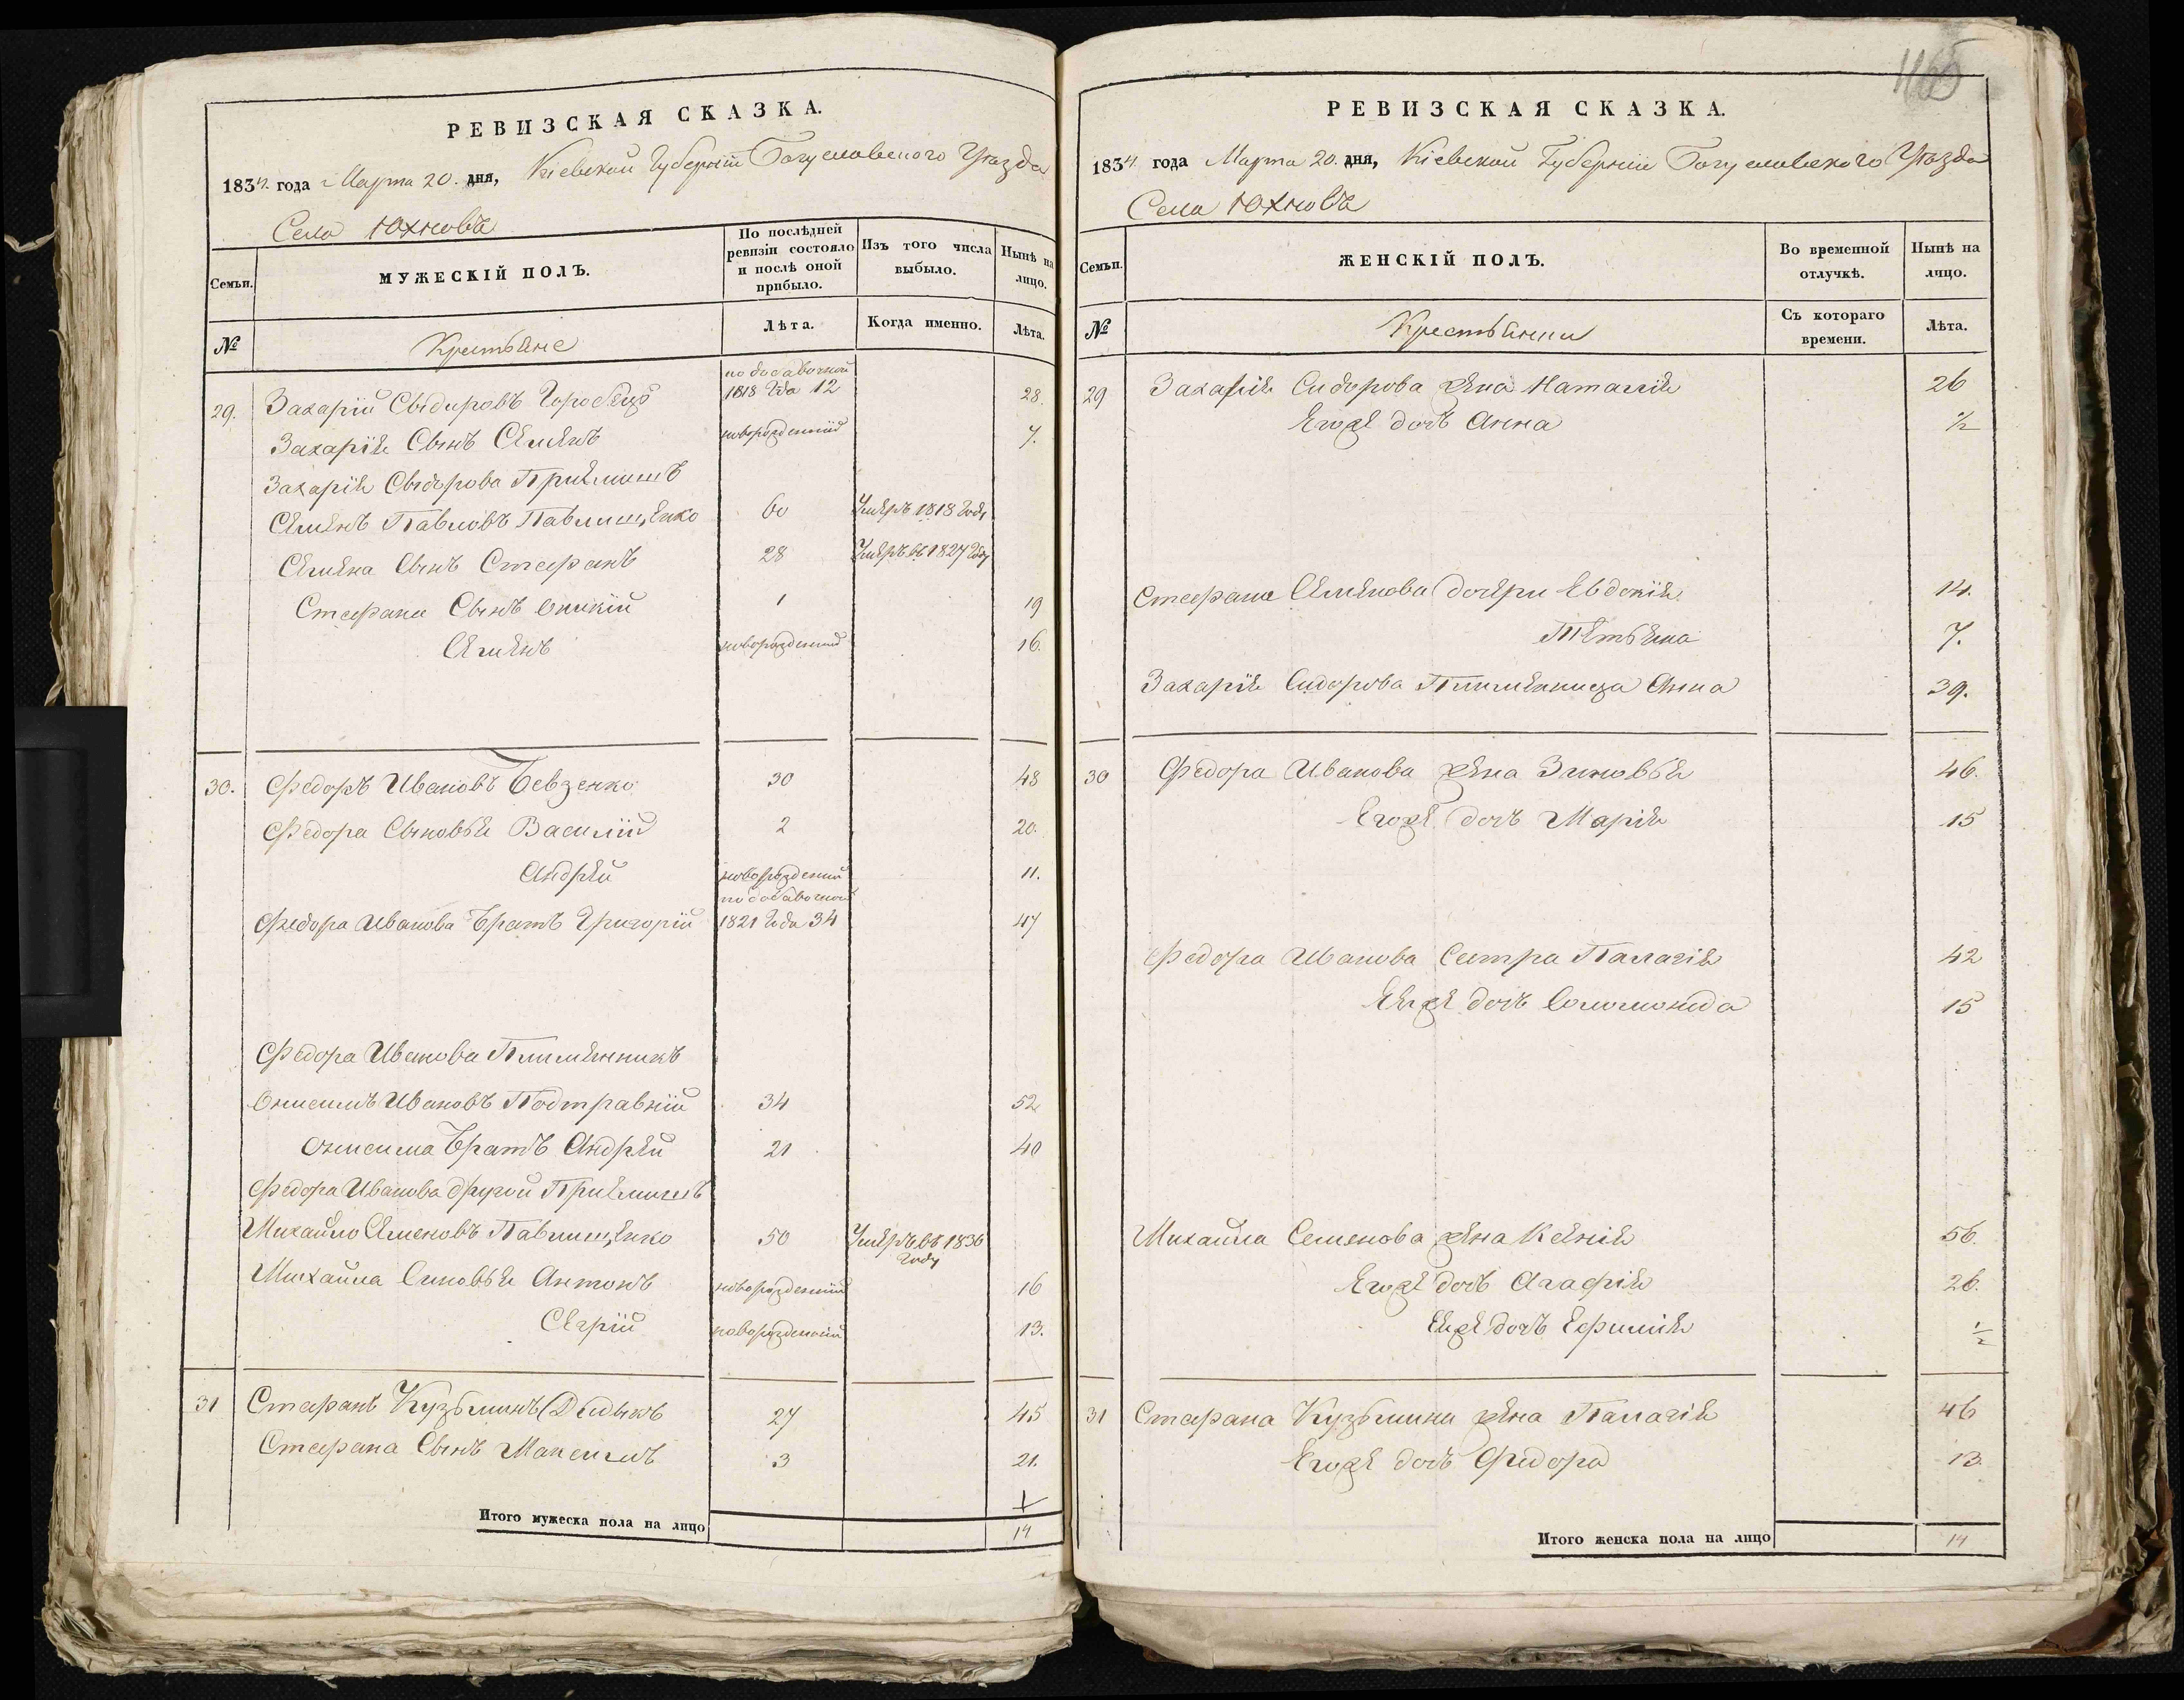 РЕВИЗСКАЯ СКАЗКА.
1834. года Марта 20. дня, Кіевской Губерніи Богуславского Уѣзда
Села Юхновъ
Семьи.
МУЖЕСКІЙ ПОЛЪ.
По послѣдней ревизіи состояло и послѣ оной прибыло.
Изъ того числа выбыло.
Нынѣ на лицо.
№
Крестьяне
Лѣта.
Когда именно.
Лѣта.
по добавочной
29. Захарій Сыдировъ Горобецъ 1818 года 12 28.
Захарія Сынъ Семенъ новорожденній 7.
Захарія Сыдорова Приемишъ
Семенъ Павловъ Павлищенко 60 Умеръ 1818 году
Семена Сынъ Стефанъ 28 Умеръ въ 1827 году
Стефана Сынъ Оникій 1 19
Семенъ новорожденній 16.
30. Федоръ Ивановъ Бевзенко 30 48
Федора Сыновья Василій 2 20.
Андрей новорожденній 11.
по добавочной
Федора Иванова Братъ Григорій 1821 года 34 47
Федора Иванова Племенникъ
Онисимъ Ивановъ Подтравній 34 52
Онисима Братъ Андрей 21 40
Федора Иванова другой Приемишъ
Михайло Семеновъ Павлищенко 50 Умеръ въ 1830
году
Михайла Сыновья Антонъ новорожденній 16
Сергій новорожденній 13.
31 Стефанъ Кузьминъ Дидыкъ 27 45
Стефана Сынъ Максимъ 3 21.
Итого мужеска пола на лицо 14
РЕВИЗСКАЯ СКАЗКА.
1834. года Марта 20. дня, Кіевской Губерніи Богуславского Уѣзда
Села Юхновъ
Семьи.
ЖЕНСКІЙ ПОЛЪ.
Во временной отлучкѣ.
Нынѣ на лицо.
№
Крестьянки
Съ котораго времени.
Лѣта.
29 Захарія Сидорова жена Наталія 26
Егоже дочь Анна ½
Стефана Семенова дочери Евдокія 14.
Тетьяна 7.
Захарія Сидорова Племенница Анна 39.
30 Федора Иванова жена Зиновья 46.
Егоже дочь Марія 15
Федора Иванова Сестра Палагія 42
Еяже дочь Соломонида 15
Михайла Семенова жена Ксенія 56.
Егоже дочь Агафія 26.
Еяже дочь Ефимія ½
31 Стефана Кузьмина жена Палагія 46
Егоже дочь Федора 13.
Итого женска пола на лицо 14